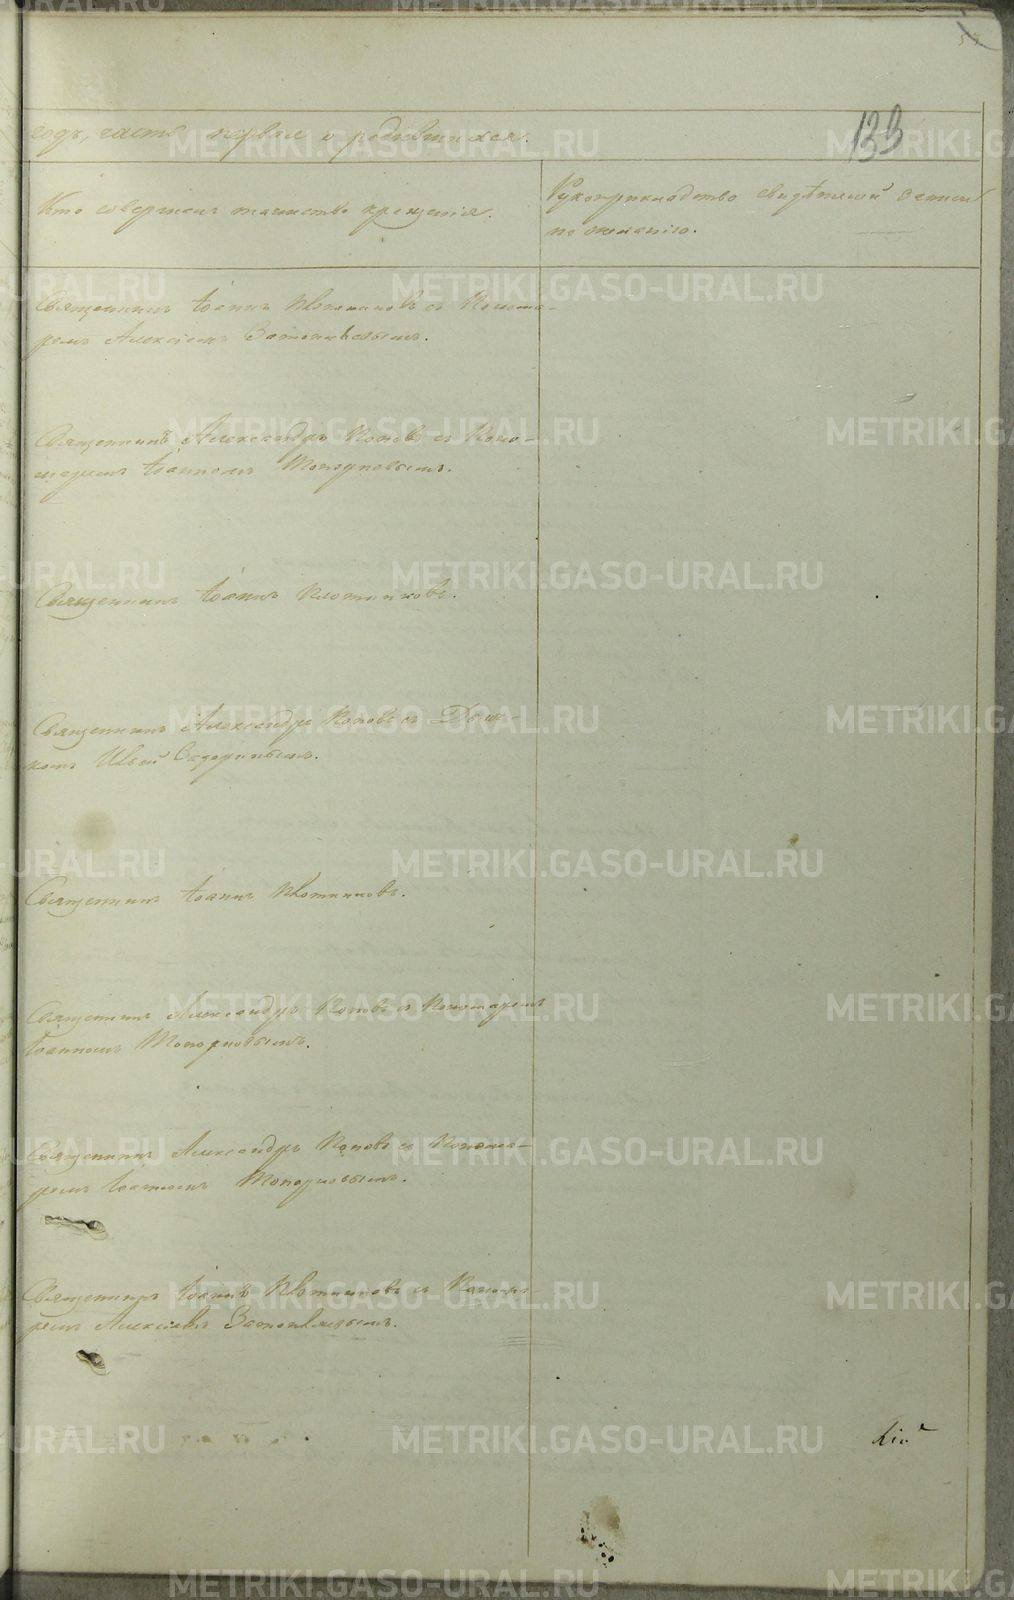 годъ, часть первая о родившихся.
133
Кто совершалъ таинство крещенія.
Рукоприкладство свидѣтелей записи
по желанію.
Священникъ Іоаннъ Плотниковъ съ Понома-
ремъ Алексіемъ
Священникъ Александръ Поповъ съ Поно-
маремъ Іоанномъ Топорковымъ.
Священникъ Іоаннъ Плотниковъ.
Священникъ Александръ Поповъ съ Дьяч-
комъ
Священникъ Іоаннъ Плотниковъ.
Священникъ Александръ Поповъ съ Пономаремъ
Іоанномъ Топорковымъ.
Священникъ Александръ Поповъ съ Понома-
ремъ Іоанномъ Топорковымъ.
Священникъ Іоаннъ Плотниковъ съ Понома-
ремъ Алексіемъ
METRIKI.GASO-URAL.RU